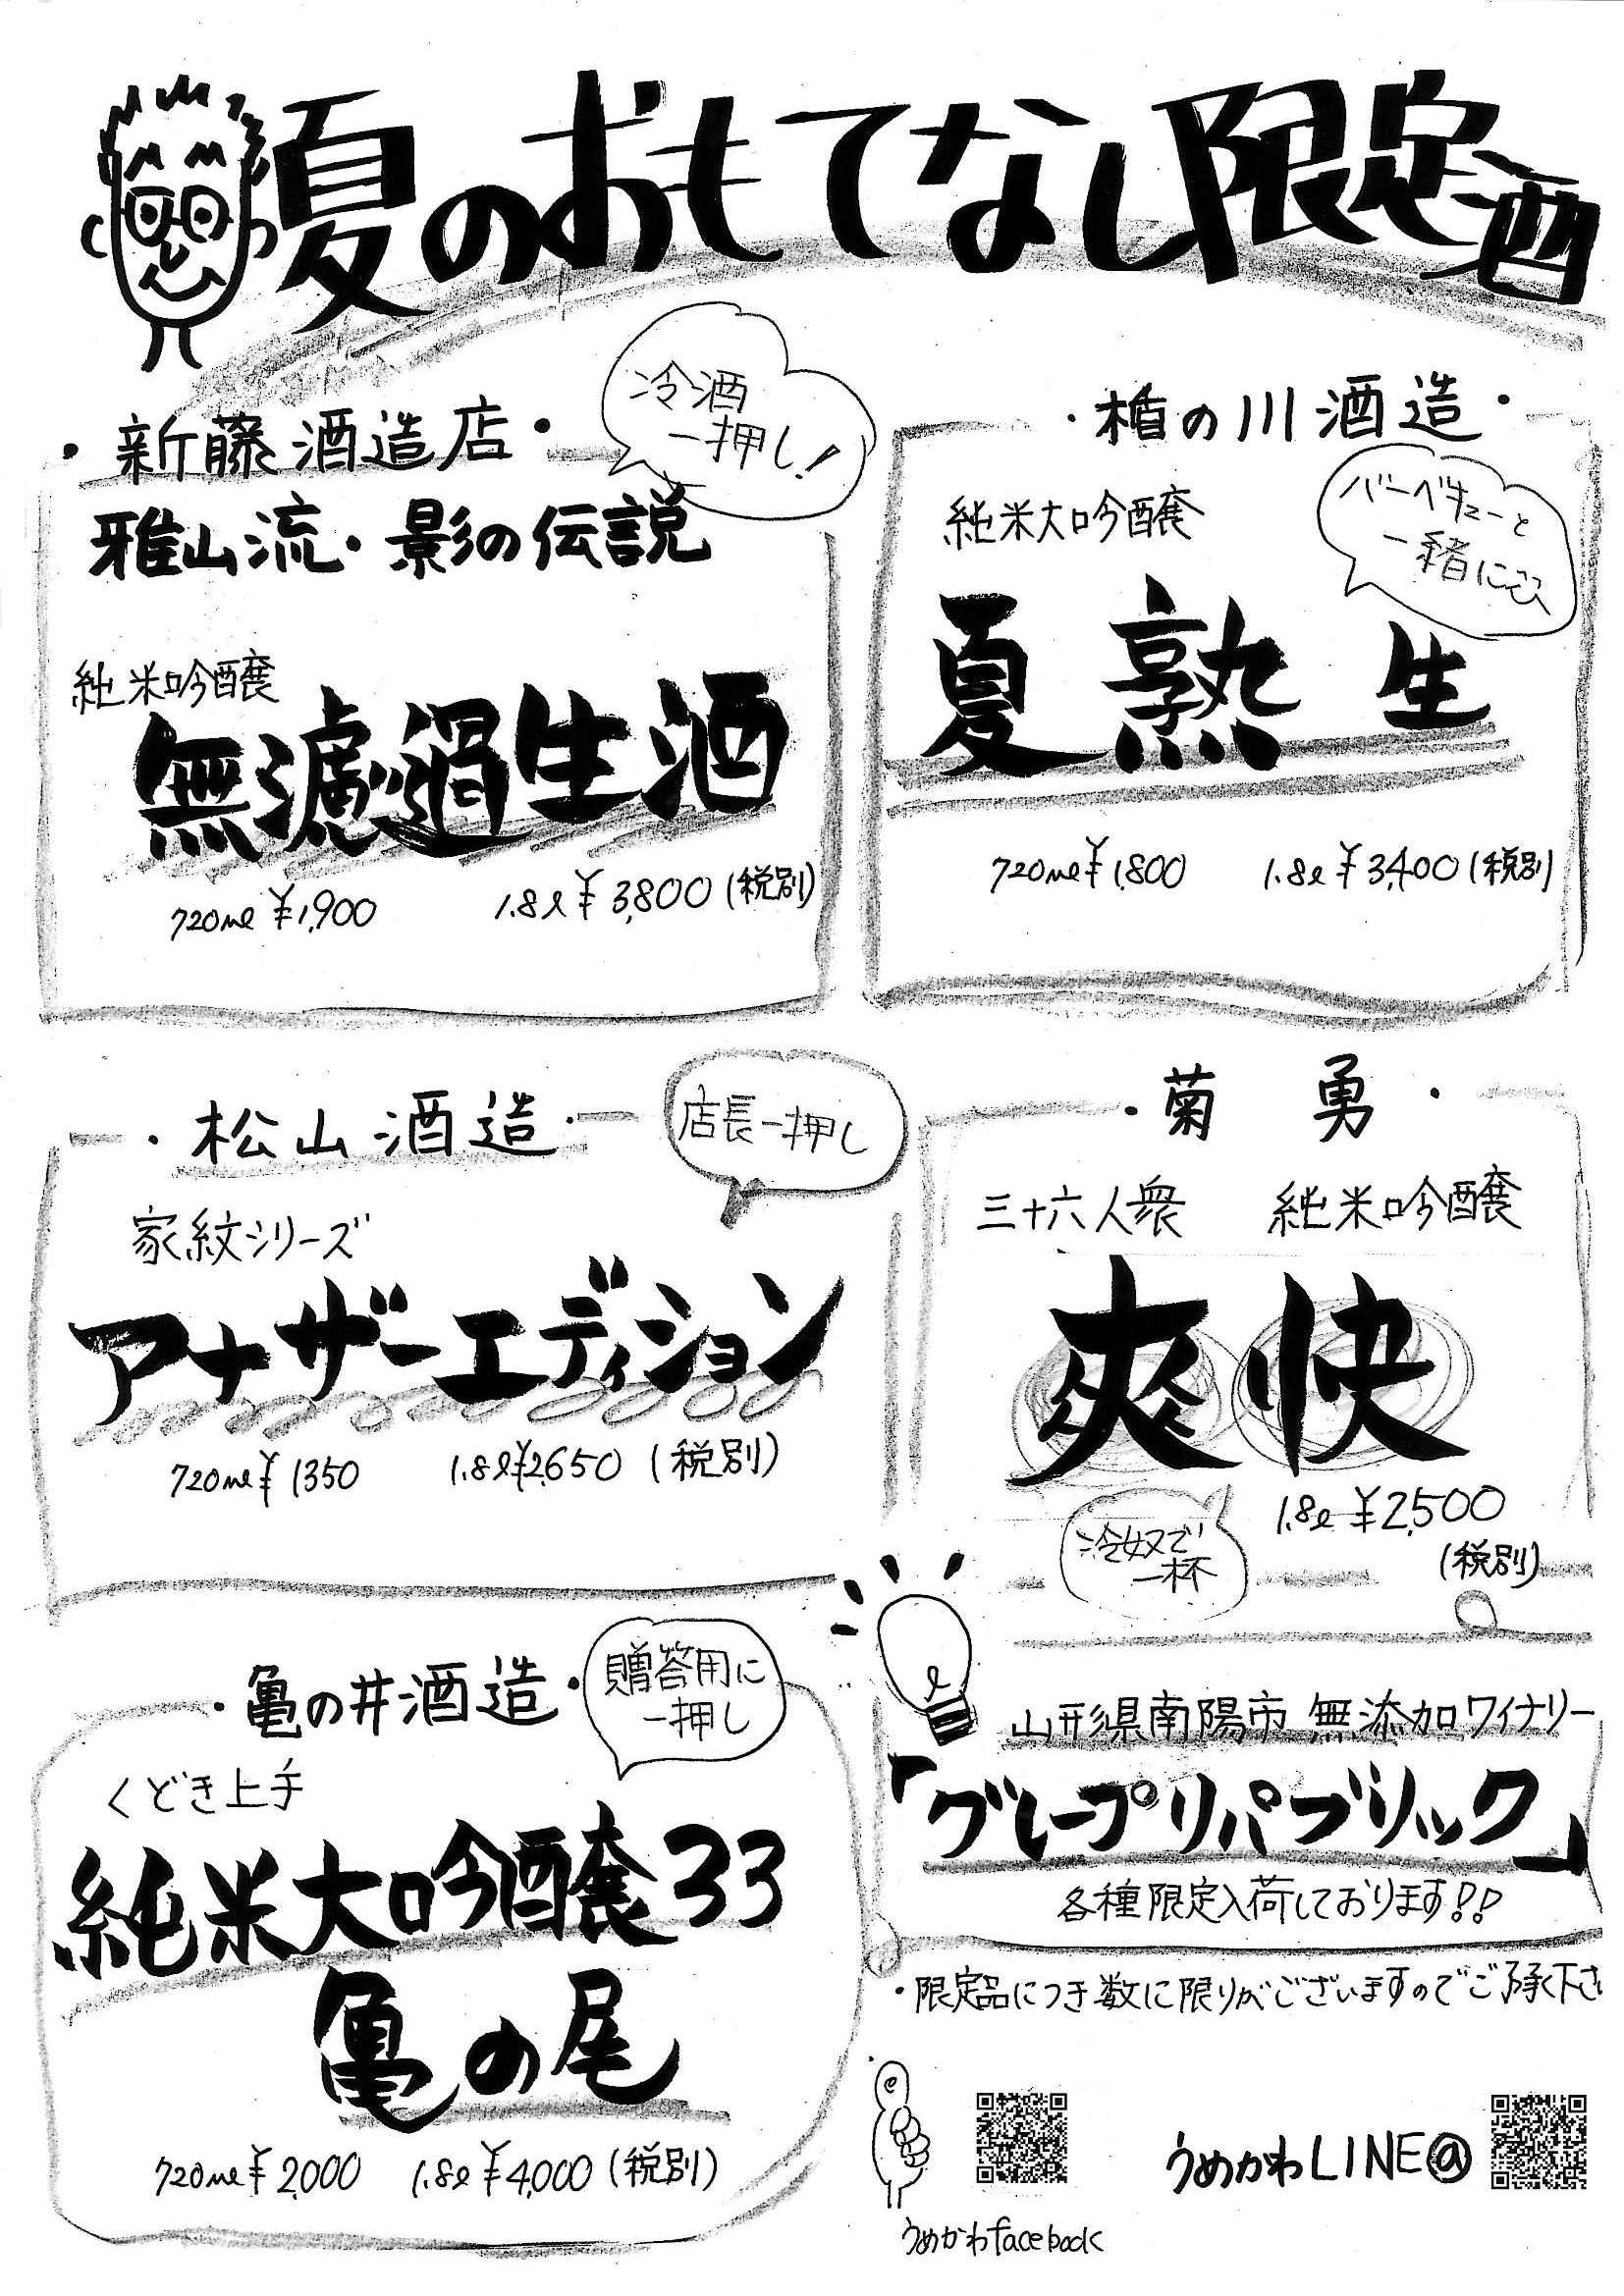 夏のおもてなし限定酒
・新藤酒造店・
冷酒
一押し!
雅山流・影の伝説
純米吟醸
無濾過生酒
720ml ¥1,900 1.8l ¥3,800 (税別)
・楯の川酒造・
バーベキューと
一緒にぜひ
純米大吟醸
夏熟 生
720ml ¥1,800 1.8l ¥3,400 (税別)
・松山酒造・
店長一押し
家紋シリーズ
アナザーエディション
720ml ¥1350 1.8l ¥2,650 (税別)
・菊 勇・
三十六人衆 純米吟醸
爽快
1.8l ¥2,500
(税別)
冷奴で
一杯
・亀の井酒造・
贈答用に
一押し
くどき上手
純米大吟醸33
亀の尾
720ml ¥2,000 1.8l ¥4,000 (税別)
山形県南陽市 無添加ワイナリー
「グレープリパブリック」
各種限定入荷しております!!
・限定品につき数に限りがございますのでご了承下さ
うめかわfacebook
うめかわLINE@